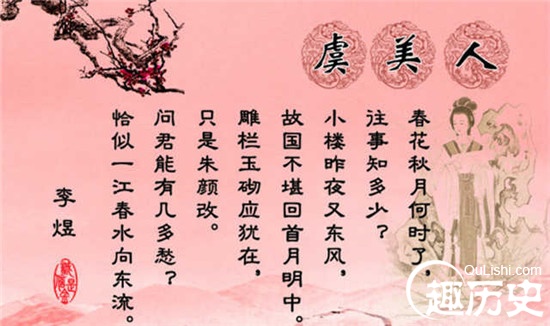 虞美人
春花秋月何时了，
注事知多少？
小楼昨夜又东风，
故国不堪回首月明中。
雕栏玉砌应犹在，
只是朱颜改。
问君能有几多愁？
恰似一江春水向东流。
李煜
QuLishi.com
趣历史